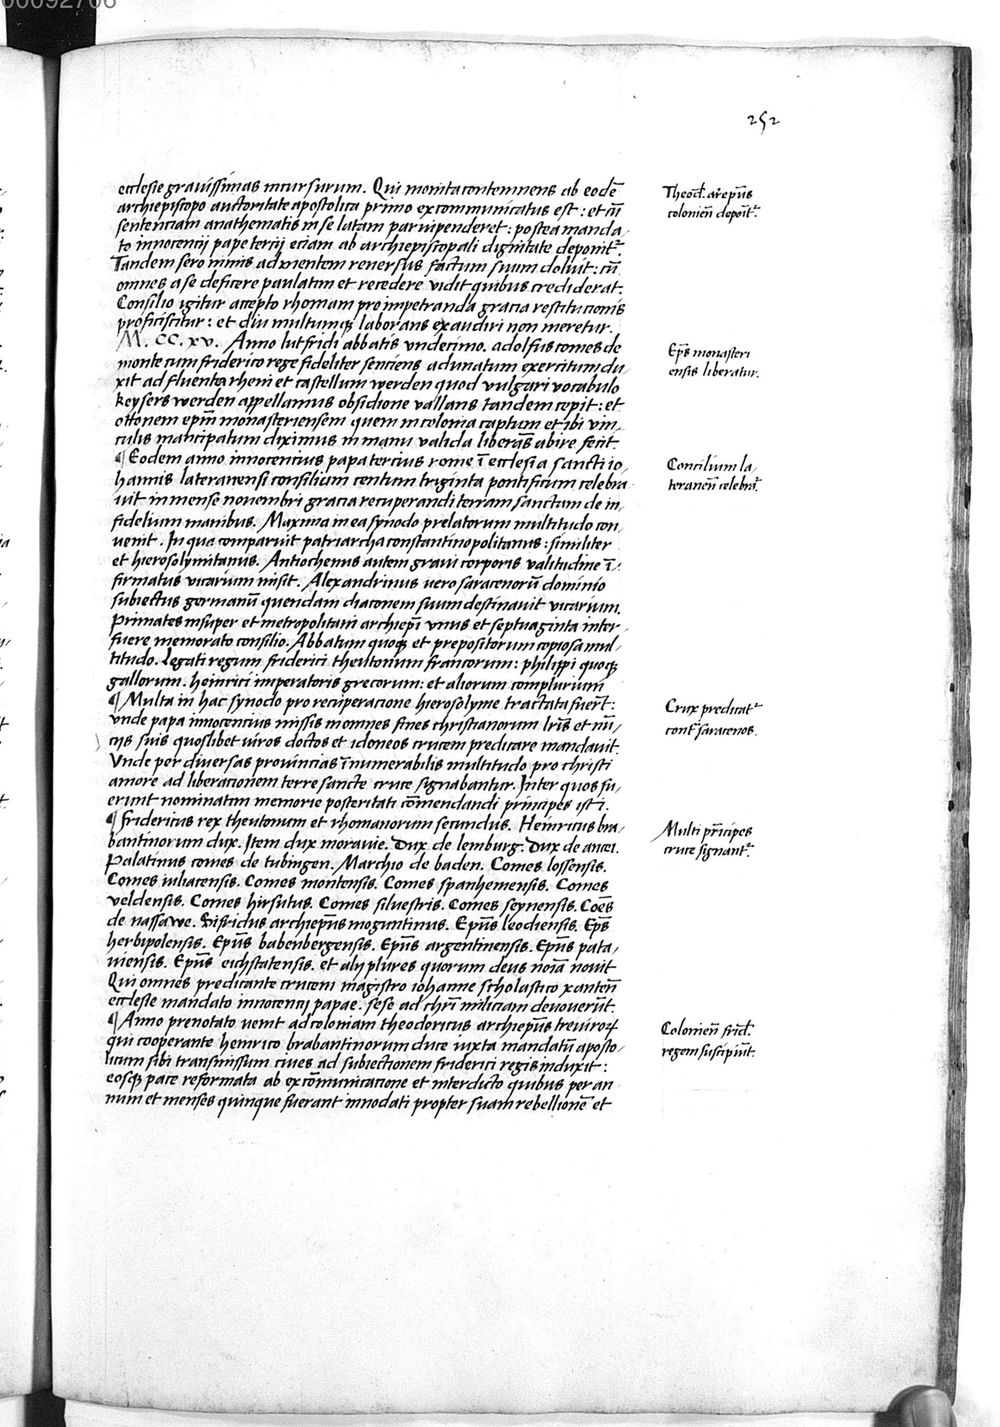 00092706
252
ecclesie gravissimas incursurum. Qui monita contemnens ab eodē
archiepiscopo auctoritate apostolica primo excommunicatus est : et cū
sentenciam anathematis in se latam parvipenderet : postea manda/
to innocencij pape tercij eciam ab archiepiscopali dignitate deponit᷑.
Tandem sero nimis ad mentem reversus factum suum doluit : cū
omnes a se deficere paulatim et recedere vidit quibus crediderat.
Consilio igitur accepto rhomam pro impetranda gracia restitucionis
proficiscitur : et diu multumqꝫ laborans exaudiri non meretur.
M. CC. xv. Anno lutfridi abbatis vndecimo. adolfus comes de
monte cum friderico rege fideliter senciens adunatum exercitum du/
xit ad fluenta rheni et castellum werden quod vulgari vocabulo
keysers werden appellamus obsidione vallans tandem cepit : et
ottonem epm̄ monasteriensem quem in colonia captum et ibi vin/
culis mancipatum diximus in manu valida liberās abire fecit
¶ Eodem anno innocencius papa tercius rome ī ecclesia sancti io/
hannis lateranensi consilium centum triginta pontificum celebra
uit in mense nouembri gracia recuperandi terram sanctam de in/
fidelium manibus. Maxima in ea synodo prelatorum multitudo con/
uenit. In qua comparuit patriarcha constantinopolitanus : similiter
et hierosolymitanus. Antiochenus autem graui corporis valitudine ī/
firmatus vicarium misit. Alexandrinus uero saracenorū dominio
subiectus germanū quendam diaconem suum destinauit vicarium.
Primates insuper et metropolitani archiepī vnus et septuaginta inter/
fuere memorato consilio. Abbatum quoqꝫ et prepositorum copiosa mul/
titudo. Legati regum friderici theutonum francorum : philippi quoqꝫ
gallorum. heinrici imperatoris grecorum : et aliorum complurium
¶ Multa in hac synodo pro recuperacione hierosolyme tractata fuerūt :
vnde papa innocencius missis in omnes fines christianorum lr̄is et nū/
cijs suis quoslibet uiros doctos et idoneos crucem predicare mandauit.
Vnde per diuersas prouincias īnumerabilis multitudo pro christi
amore ad liberacionem terre sancte cruce signabantur. Inter quos fu/
erunt nominatim memorie posteritati cōmendandi principes isti.
¶ fridericus rex theutonum et rhomanorum secundus. Heinricus bra/
bantinorum dux. Item dux moravie. Dux de lemburg. Dux de
Palatinus comes de tubingen. Marchio de baden. Comes lossensis.
Comes iuliacensis. Comes montensis. Comes spanhemensis. Comes
veldensis. Comes hirsutus. Comes siluestris. Comes seynensis. Coēs
de nassawe. Sifridus archiepūs moguntinus. Epūs leodiensis. Epūs
herbipolensis. Epūs babenbergensis. Epūs argentinensis. Epūs pata/
uiensis. Epūs eichstatensis. et alij plures quorum deus noīa nouit
Qui omnes predicante crucem magistro iohanne scholastico xantēn
ecclesie mandato innocencij papae. sese ad chr̄i miliciam deuouerūt.
¶ Anno prenotato uenit ad coloniam theodoricus archiepūs treuiroꝝ
qui cooperante henrico brabantinorum duce iuxta mandatū aposto/
licum sibi transmissum ciues ad subiectionem friderici regis induxit :
eosqꝫ pace reformata ab excōmunicacione et interdicto quibus per an
num et menses quinque fuerant innodati propter suam rebellionē et
Theod̄. arepūs
colonień deponit᷑.
Epūs monasteri
ensis liberatur.
Concilium la/
teraneń celebrat᷑.
Crux predicat᷑
contᷓ saracenos.
Multi prīcipes
cruce signant᷑.
Colonień frid̄.
regem suscipiūt.